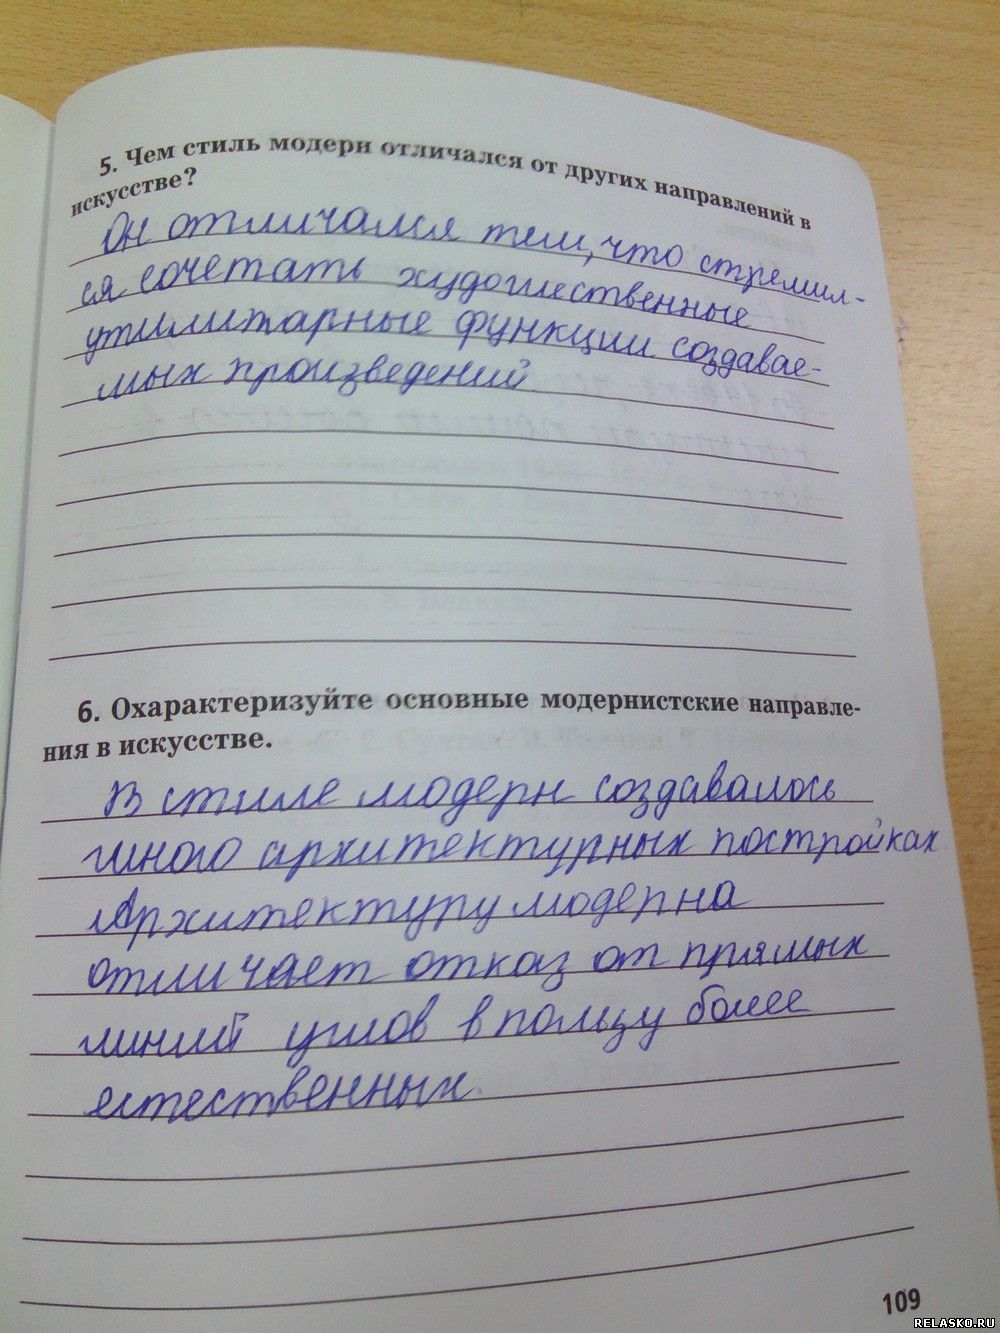 5. Чем стиль модерн отличался от других направлений в
искусстве?
Он отличался тем, что стремил-
ся сочетать художественные
утилитарные функции создавае-
мых произведений
6. Охарактеризуйте основные модернистские направле-
ния в искусстве.
В стиле модерн создавалось
много архитектурных постройках
Архитектуру модерна
отличает отказ от прямых
линий углов в пользу более
естественных.
109
RELASKO.RU